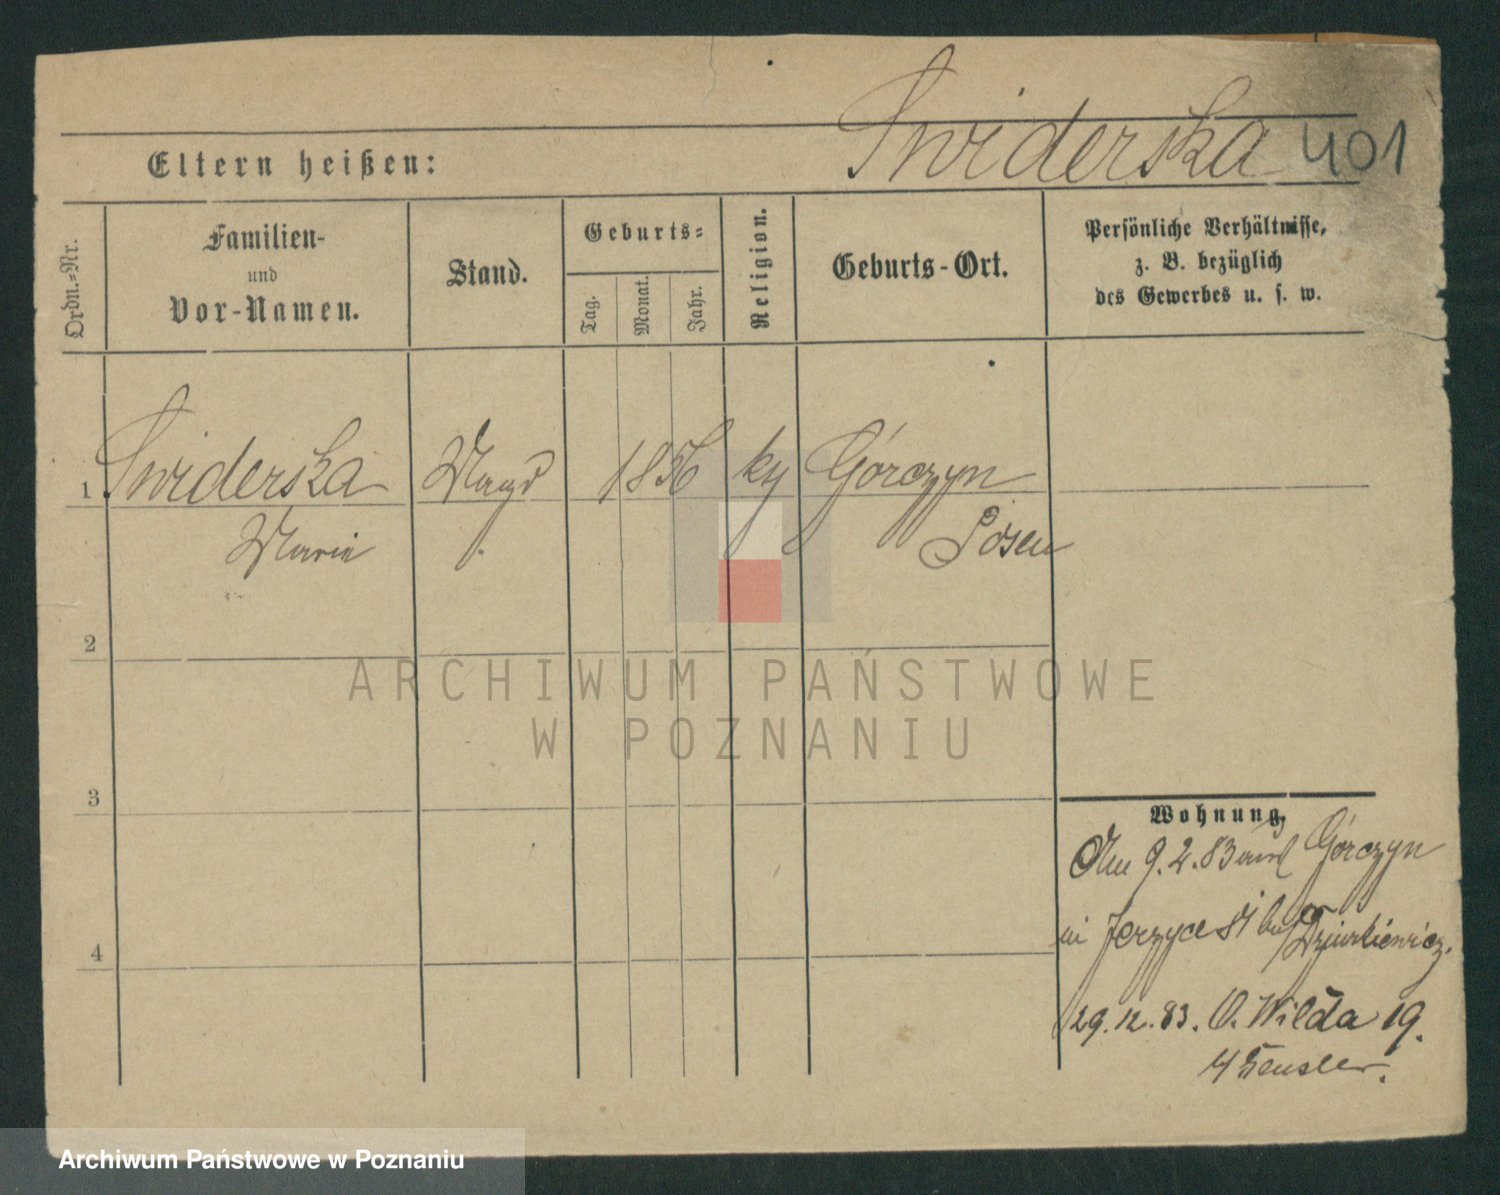 Swiderska 401
Eltern heißen:
Ordn.-Nr.
Familien-
und
Vor-Namen.
Stand.
Geburts-
Tag.
Monat.
Jahr.
Religion.
Geburts-Ort.
Persönliche Verhältnisse,
z. B. bezüglich
des Gewerbes u. s. w.
1 Swiderska Magd 1856 Górczyn
Marie Posen
2
3
4
Wohnung.
Am 9.2.83 Górczyn
in Jerzyce
29.12.83. O. Wilda 19.
ARCHIWUM PAŃSTWOWE
W POZNANIU
Archiwum Państwowe w Poznaniu